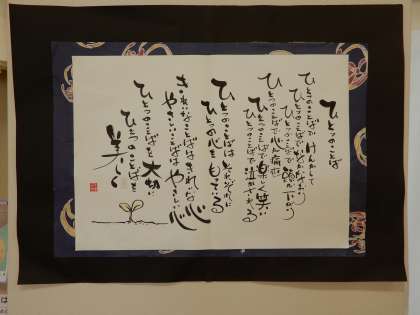 ひとつのことば
ひとつのことばで けんかして
ひとつのことばで なかなおり
ひとつのことばで 頭が下がり
ひとつのことばで 心が痛む
ひとつのことばで 楽しく笑い
ひとつのことばで 泣かされる
ひとつのことばは それぞれに
ひとつの心を もっている
きれいなことばは きれいな心
やさしいことばは やさしい心
ひとつのことばを 大切に
ひとつのことばを
美しく